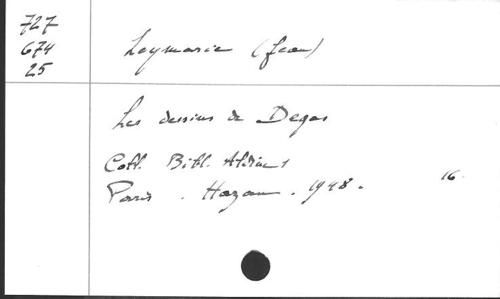 727
674
25
Leymarie (Jean)
Les dessins de Degas
Coll. Bibl. Aldines
Paris . Hazan . 1948 . 16